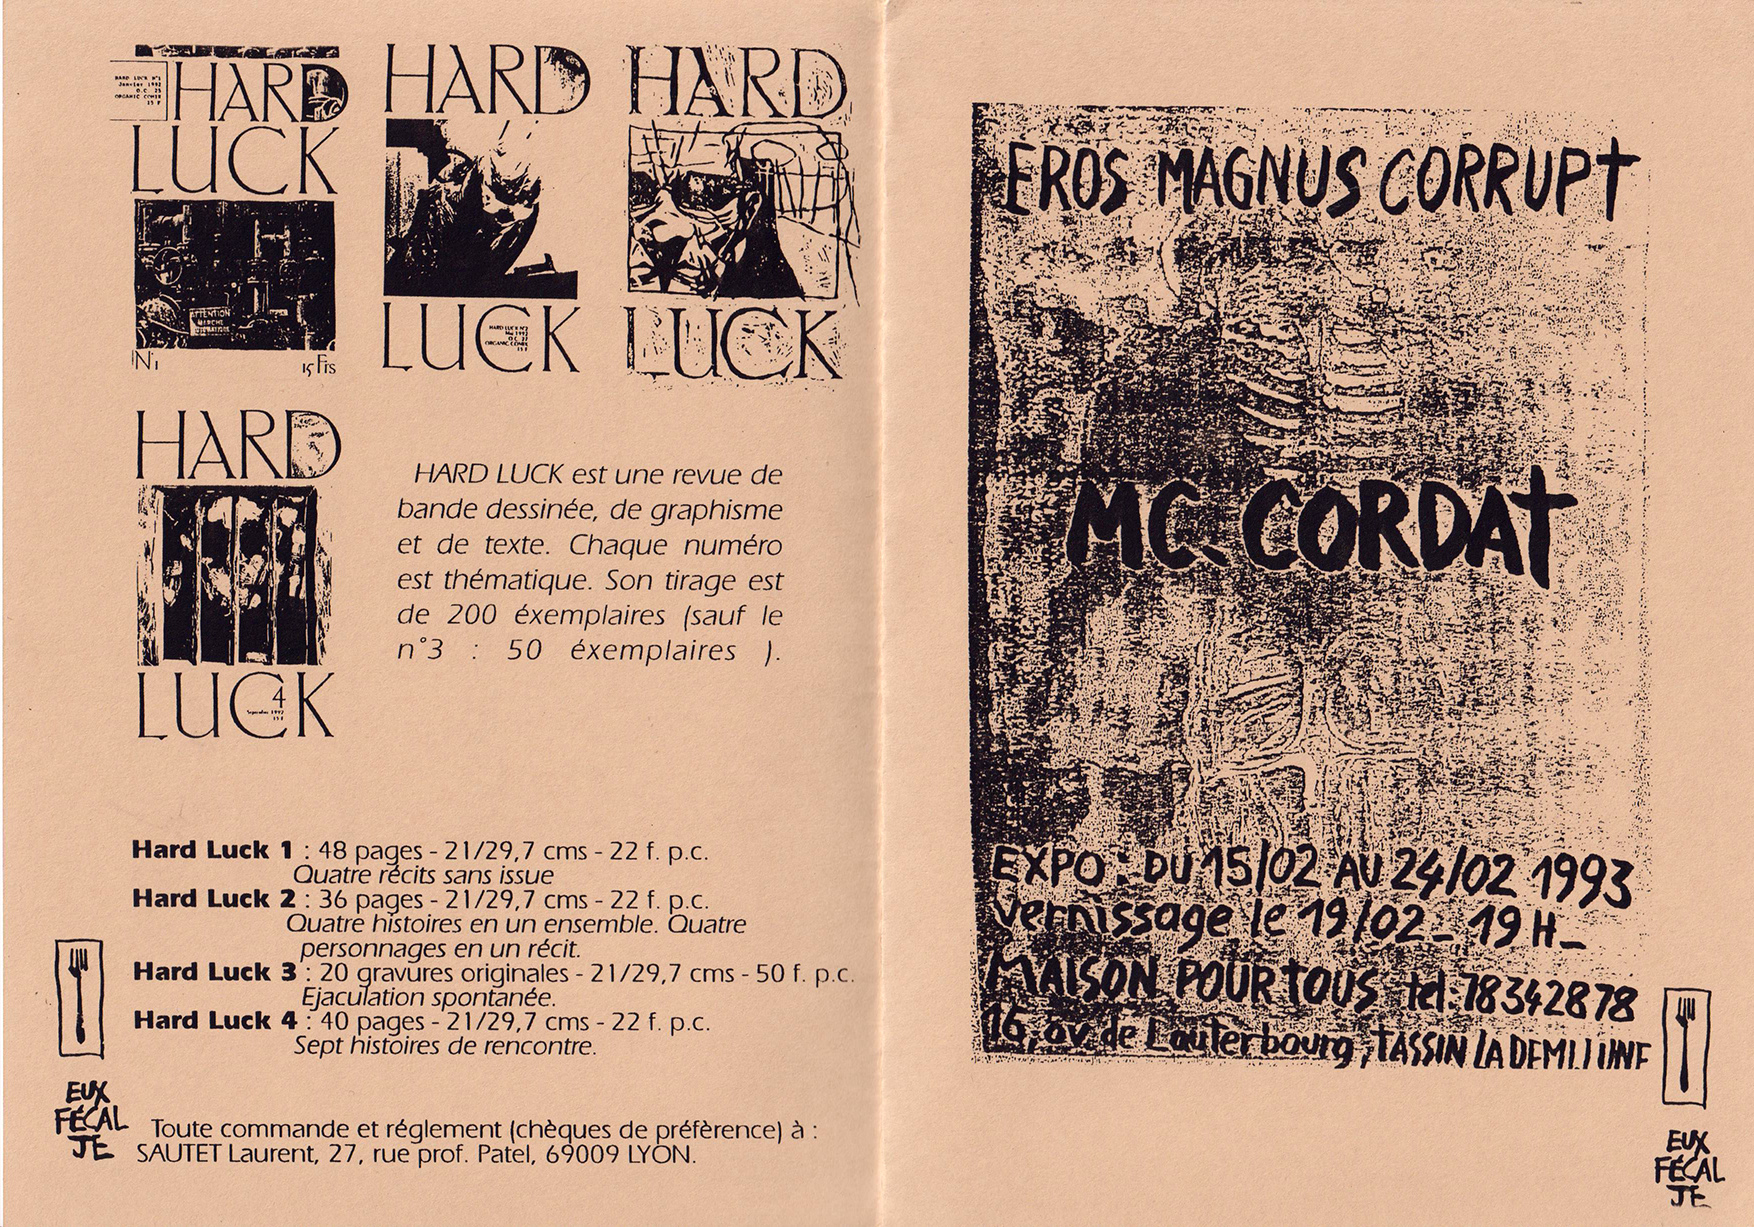 HARD LUCK N°1
Janvier 1992
O.C. 25
ORGANIC COMIX
15 F
HARD
LUCK
ATTENTION
MARCHE
N°1
15 Frs
HARD
LUCK
HARD LUCK N°2
Mai 1992
O.C. 27
ORGANIC COMIX
15 F
HARD
LUCK
HARD
LUCK
4
Septembre 1992
15 F
HARD LUCK est une revue de
bande dessinée, de graphisme
et de texte. Chaque numéro
est thématique. Son tirage est
de 200 éxemplaires (sauf le
n°3 : 50 éxemplaires ).
Hard Luck 1 : 48 pages - 21/29,7 cms - 22 f. p.c.
Quatre récits sans issue
Hard Luck 2 : 36 pages - 21/29,7 cms - 22 f. p.c.
Quatre histoires en un ensemble. Quatre
personnages en un récit.
Hard Luck 3 : 20 gravures originales - 21/29,7 cms - 50 f. p.c.
Ejaculation spontanée.
Hard Luck 4 : 40 pages - 21/29,7 cms - 22 f. p.c.
Sept histoires de rencontre.
EUX
FÉCAL
JE
Toute commande et réglement (chèques de préfèrence) à :
SAUTET Laurent, 27, rue prof. Patel, 69009 LYON.
EROS MAGNUS CORRUPT
MC. CORDAT
EXPO : DU 15/02 AU 24/02 1993
vernissage le 19/02_ 19 H_
MAISON POUR TOUS tel: 78342878
16, av. de Lauterbourg, TASSIN LA DEMI LUNE
EUX
FÉCAL
JE